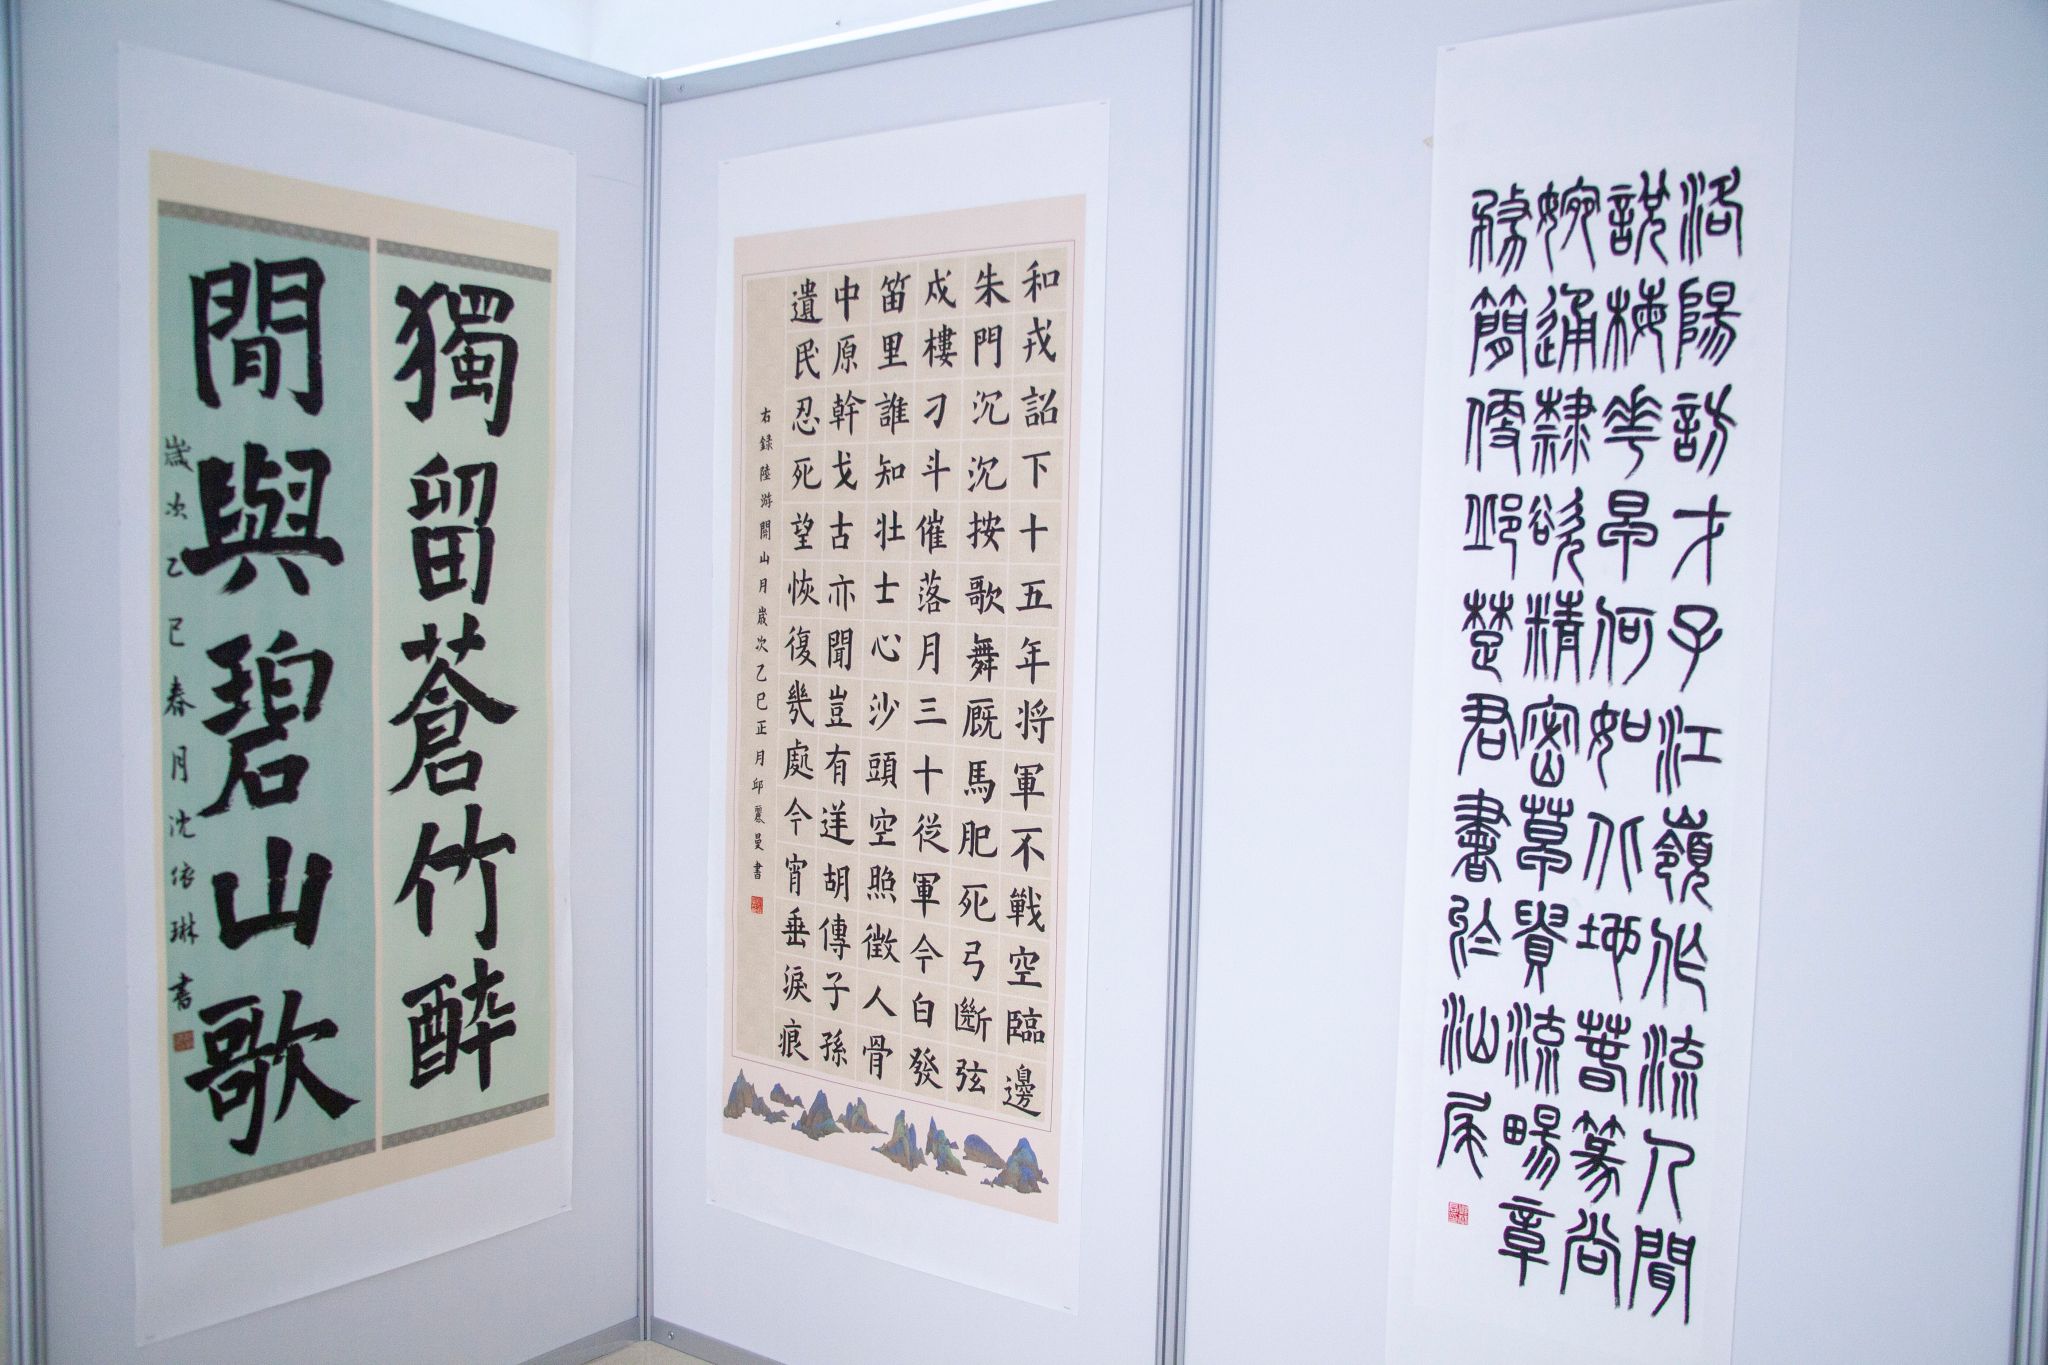 獨留蒼竹醉
閒與碧山歌
歲次乙巳春月沈依琳書
和戎詔下十五年将軍不戰空臨邊
朱門沉沉按歌舞厩馬肥死弓斷弦
戍樓刁斗催落月三十從軍今白發
笛里誰知壯士心沙頭空照徵人骨
中原幹戈古亦聞豈有逆胡傳子孫
遺民忍死望恢復幾處今宵垂淚痕
右錄陸游關山月歲次乙巳正月邱麗曼書
洛陽訪才子江嶺作流人聞
說梅花早何如北地春篆尚
婉通隸欲精密草貴流暢章
務簡便邱楚君書於汕尾